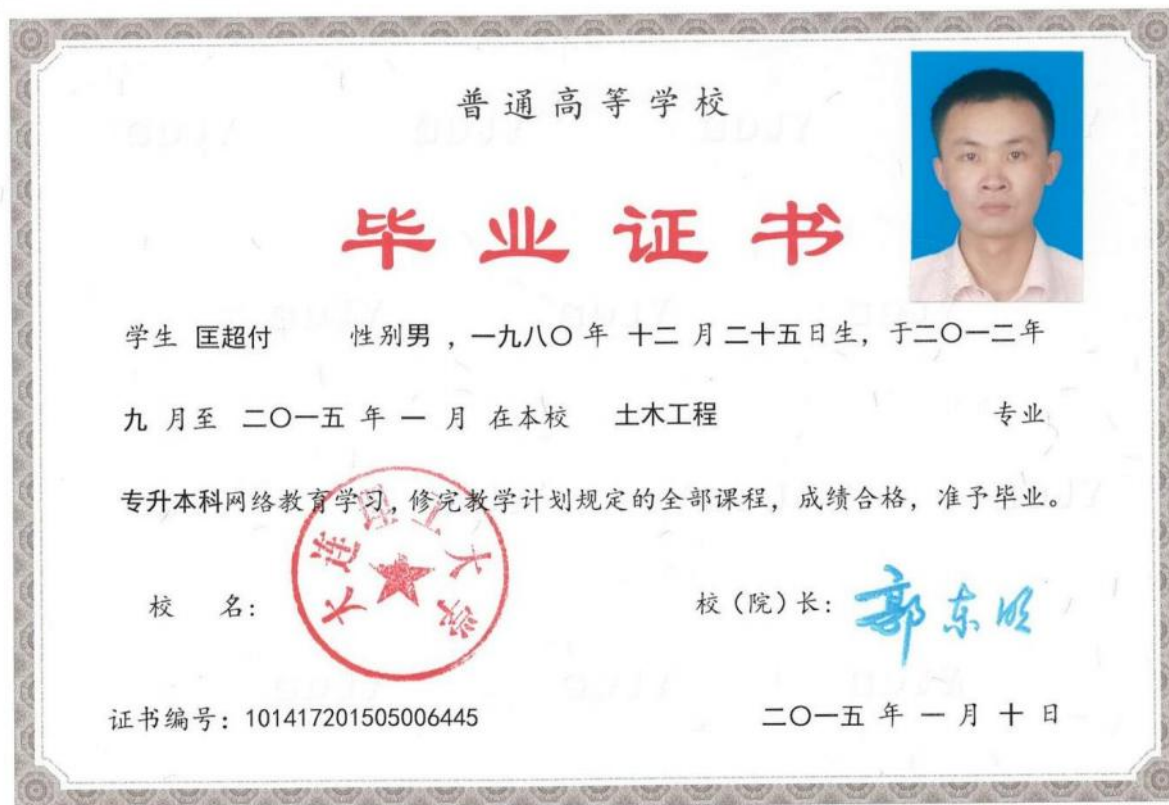 普通高等学校
毕业证书
学生 匡超付 性别男，一九八〇年 十二 月二十五日生，于二〇一二年
九 月至 二〇一五 年 一 月 在本校 土木工程 专业
专升本科网络教育学习，修完教学计划规定的全部课程，成绩合格，准予毕业。
校 名：
大连理工大学
校（院）长：郭东明
证书编号：101417201505006445
二〇一五 年 一 月 十 日